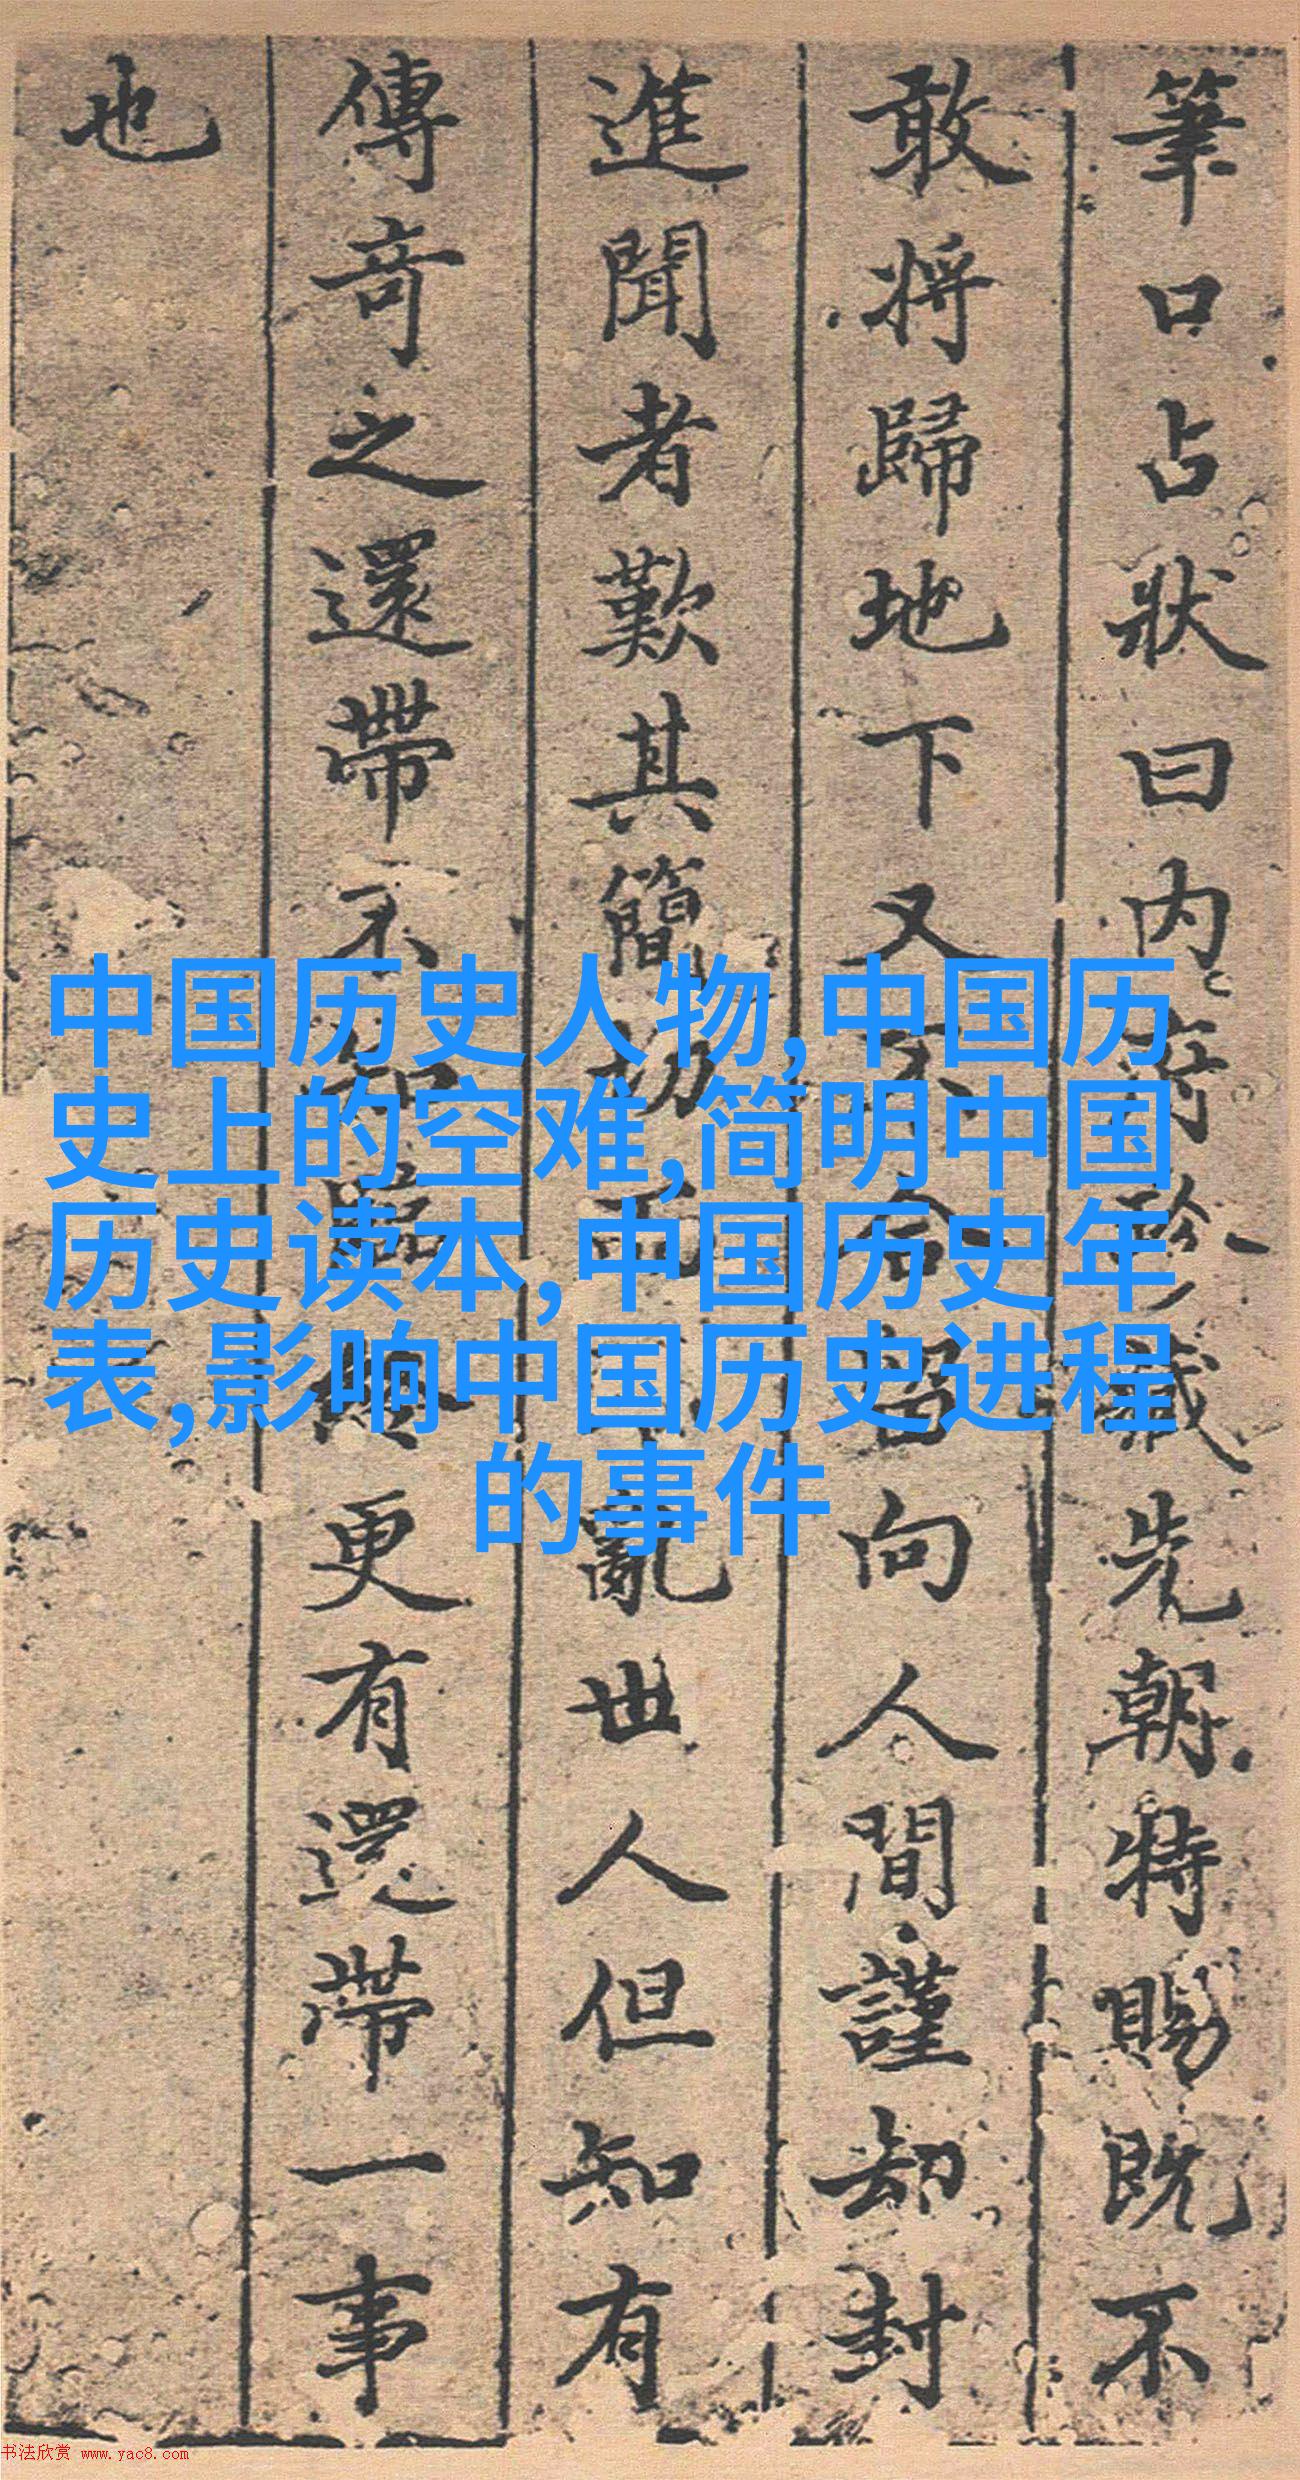 筆口占狀曰内府珍藏先朝特賜既不
敢將歸地下又不合留向人間謹却封
進聞者歎其簡切而不亂世人但知有
傳奇之還帶不知臨終更有還帶一事
也
中国历史人物,中国历
史上的空难,简明中国
历史读本,中国历史年
表,影响中国历史进程
的事件
书法欣赏 www.yac8.com